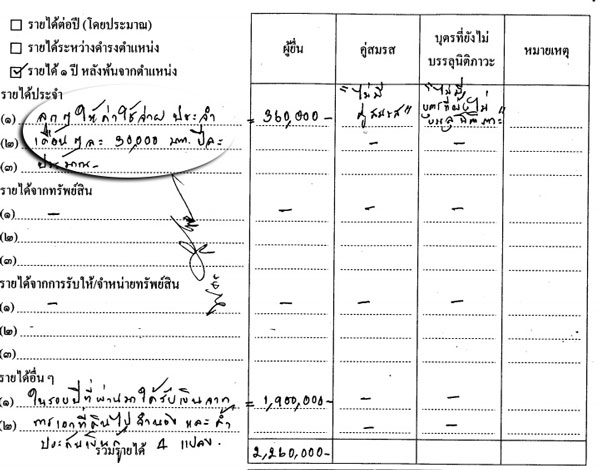 รายได้ต่อปี (โดยประมาณ)
รายได้ระหว่างดำรงตำแหน่ง
รายได้ ๑ ปี หลังพ้นจากตำแหน่ง
ผู้ยื่น คู่สมรส บุตรที่ยังไม่บรรลุนิติภาวะ หมายเหตุ
รายได้ประจำ
(๑) ลูกๆ ให้ค่าใช้จ่าย ประจำ = 360,000- "ไม่มีคู่สมรส" "ไม่มีบุตรที่ยังไม่บรรลุนิติภาวะ"
(๒) เดือนๆ ละ 30,000 บาท. ปีละ - -
(๓) ประมาณ -
รายได้จากทรัพย์สิน
(๑) - - - -
(๒)
(๓)
รายได้จากการรับให้/จำหน่ายทรัพย์สิน
(๑) - - - -
(๒) -
(๓)
รายได้อื่น ๆ
(๑) ในรอบปีที่ผ่านมาได้รับเงินจาก = 1,900,000- - -
(๒) การเอาที่ดินไปจำนอง และค้ำ - -
ประกันเงินกู้ 4 แปลง.
รวมรายได้ 2,260,000-